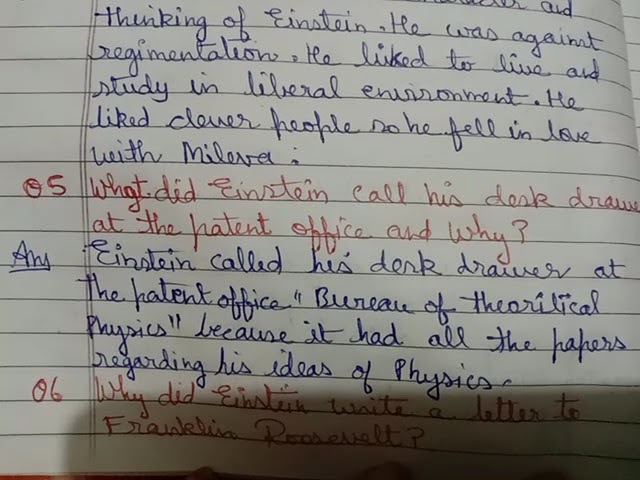 and
thinking of Einstein. He was against
regimentation. He liked to live and
study in liberal environment. He
liked clever people so he fell in love
with Mileva.
Q5 What did Einstein call his desk drawe
at the patent office and Why?
Ans Einstein called his desk drawer at
the patent office "Bureau of theoritical
Physics" because it had all the papers
regarding his ideas of Physics.
Q6 Why did Einstein write a letter to
Franklin Roosevelt?